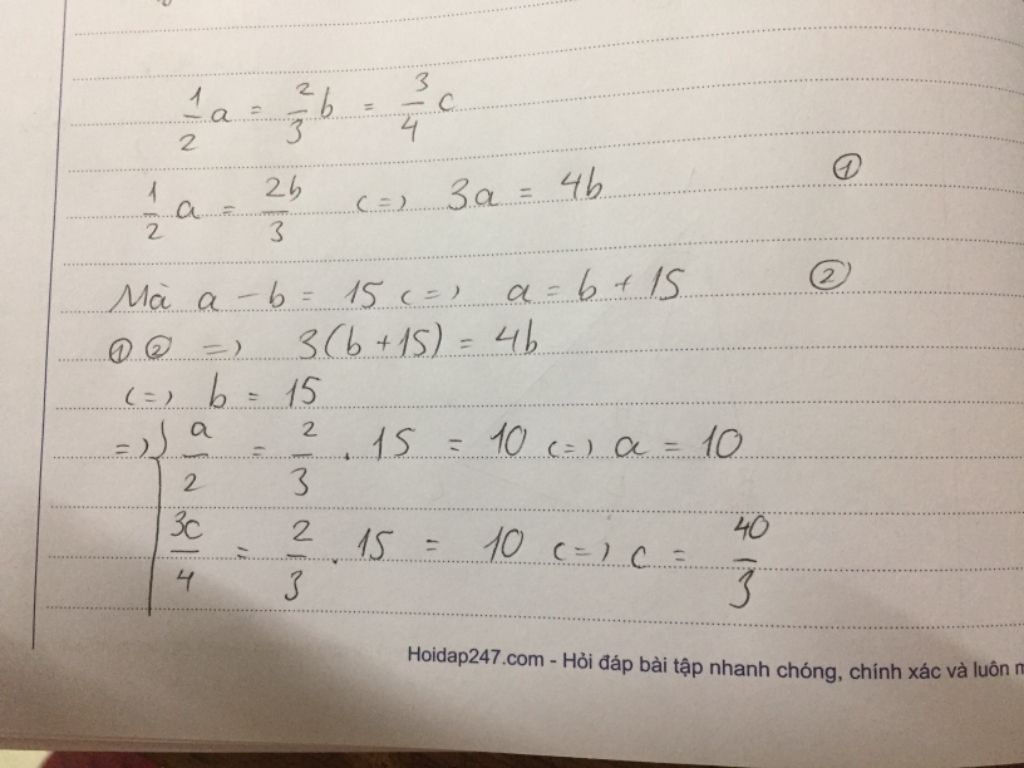 1/2 a = 2/3 b = 3/4 c
1/2 a = 2b/3 (=) 3a = 4b ①
Mà a - b = 15 (=) a = b + 15 ②
① ② =) 3(b + 15) = 4b
(=) b = 15
=) { a/2 = 2/3 . 15 = 10 (=) a = 10
3c/4 = 2/3 . 15 = 10 (=) c = 40/3
Hoidap247.com - Hỏi đáp bài tập nhanh chóng, chính xác và luôn